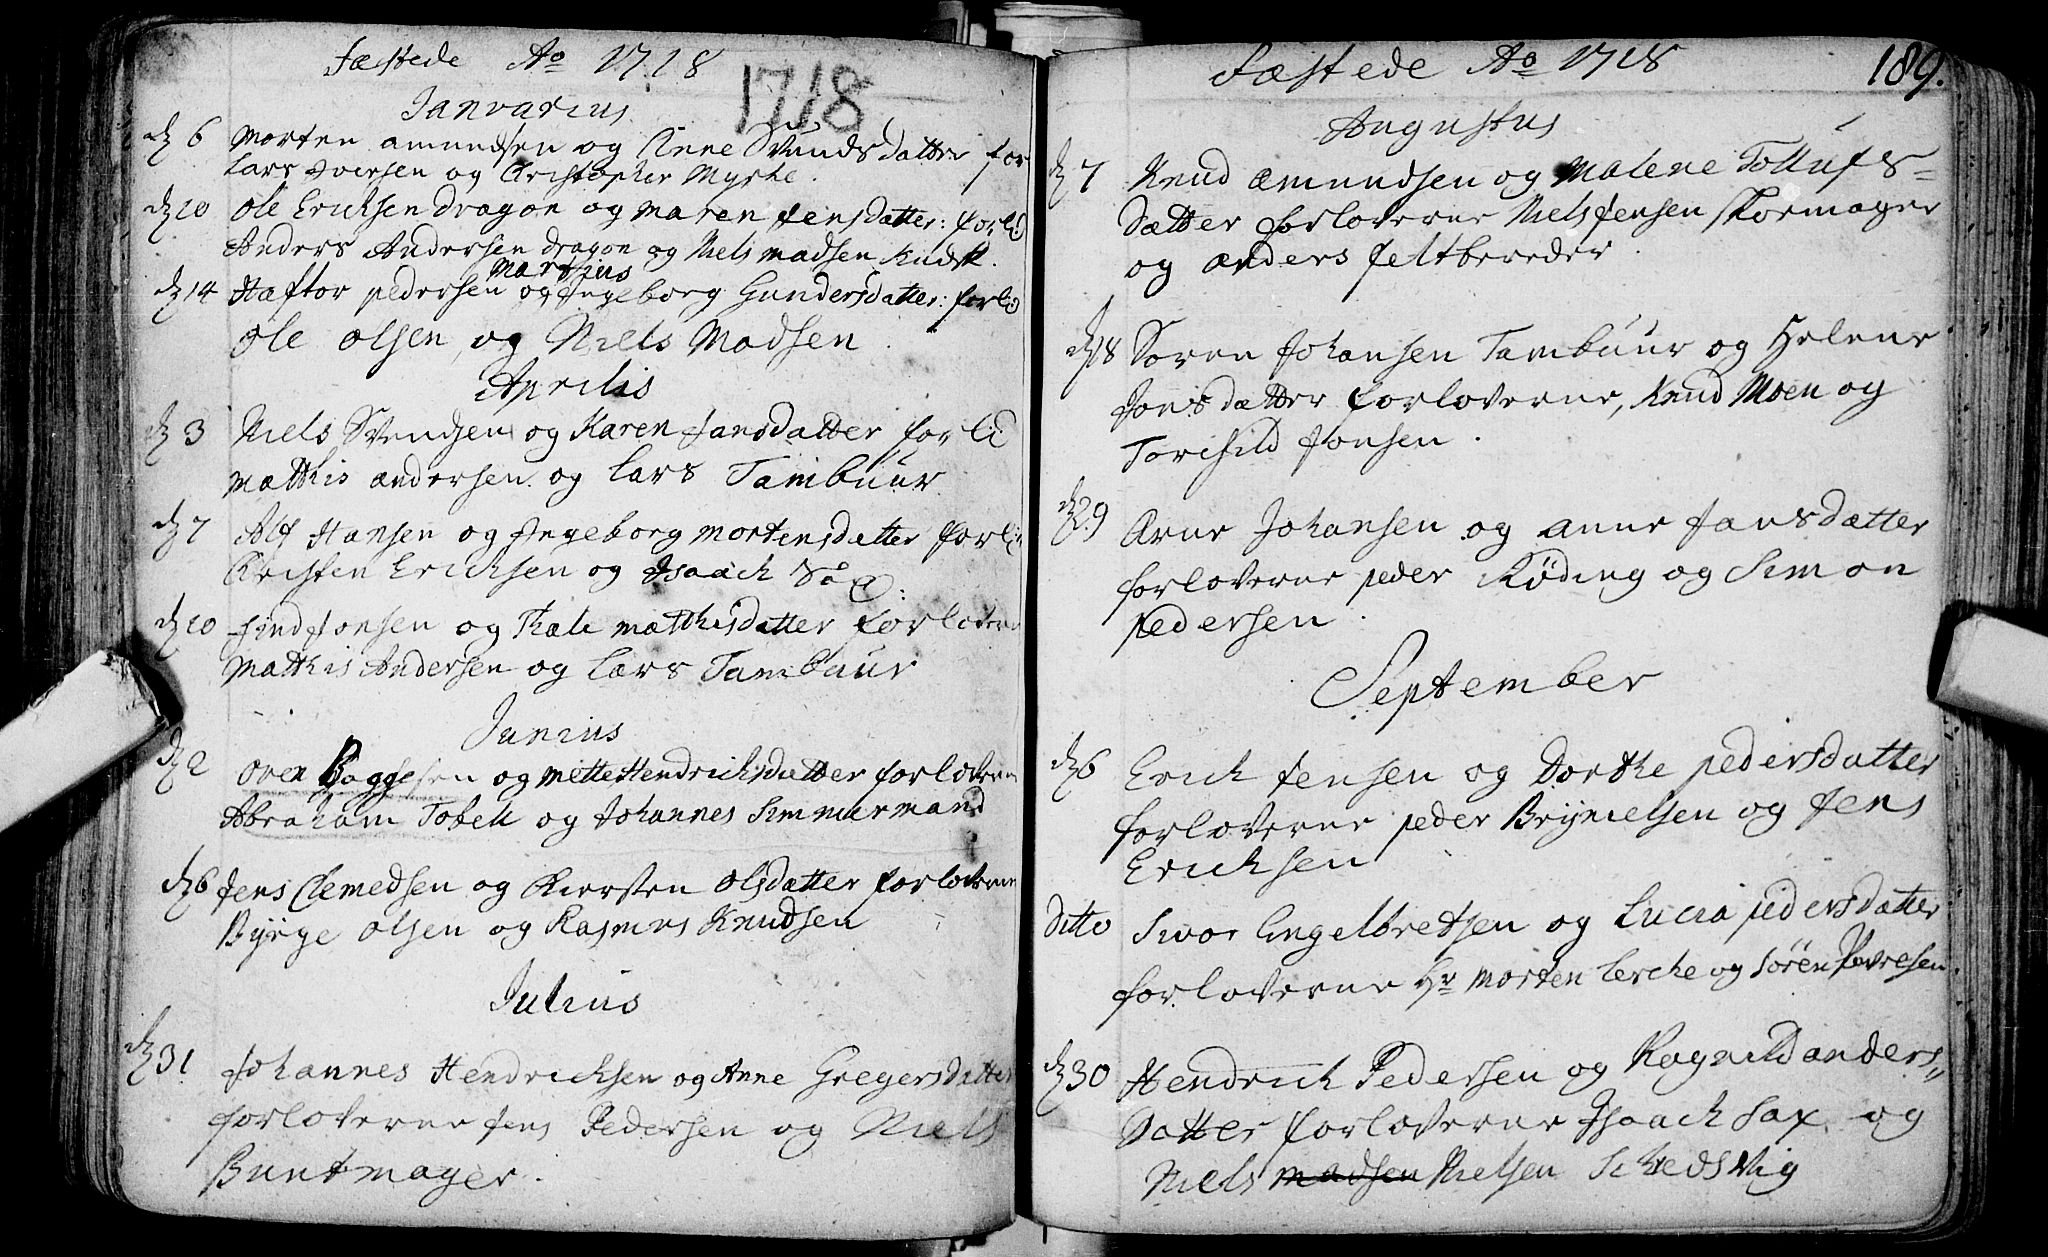 Fæstede Ao 1718
1718
Januarius
dℨ 6 Morten amundsen og Anne Svendsdatter for
Lars Iversen og Christopher Myhre.
dℨ 10 Ole Erichsen dragon og Maren Jensdatter: forl:
Anders Andersen dragon og Niels Madsen Kudsk.
Martius
dℨ 14 Haftor pedersen og Ingeborg Gundersdatter: forl:
Ole Olsen, og Niels Madsen.
Aprilis
dℨ 3 Niels Svendsen og Karen Jansdatter forl:
Matthis andersen og Lars Tambuur
dℨ 7 Alf Hansen og Ingeborg Mortensdatter forl:
Christen Erichsen og Isaach Sax:
dℨ 10 Find Jonsen og Kali Matthisdatter forlovere
Matthis Andersen og Lars Tambuur
Junius
dℨ 2 Oven Baggesen og Mette Hendrichsdatter forloverne
Abraham Tobell og Johannes Simmermand
dℨ 6 Jens Clemedsen og Kiersten Olsdatter forloverne
Byrge Olsen og Rasmus Knudsen
Julius
dℨ 31 Johannes Hendrichsen og Anne Gregersdatter
forloverne Jens Pedersen og Niels
Buntmager.
Fæstede Ao 1718
189.
Augustus
dℨ 7 Knud Amundsen og Malene Tollufs-
datter forloverne Niels Jensen skoemager
og anders feltbereder.
dℨ 18 Søren Johansen Tambuur og Helene
Jonsdatter forloverne, Knud Moen og
Torchild Jonsen.
dℨ 29 Arne Johansen og anne Jansdatter
forloverne peder Røding og Simon
Pedersen.
September
dℨ 6 Erich Jensen og Dorthe pedersdatter
forloverne peder Brynielsen og Jens
Erichsen
Ditto Siver Engelbretsen og Lucia pedersdatter
forloverne Hr Morten Lerche og Søren Povelsen.
dℨ 30 Hendrich Pedersen og Ragnild anders=
datter forloverne Isaach Sax og
Niels Madsen Nielsen Schedsvig